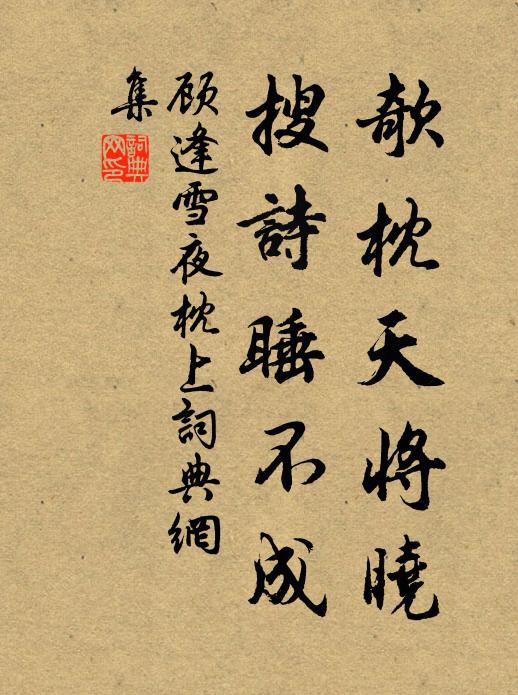 欹枕天將曉
搜詩睡不成
顾逢雪夜枕上詞典網
集
詞典
网印